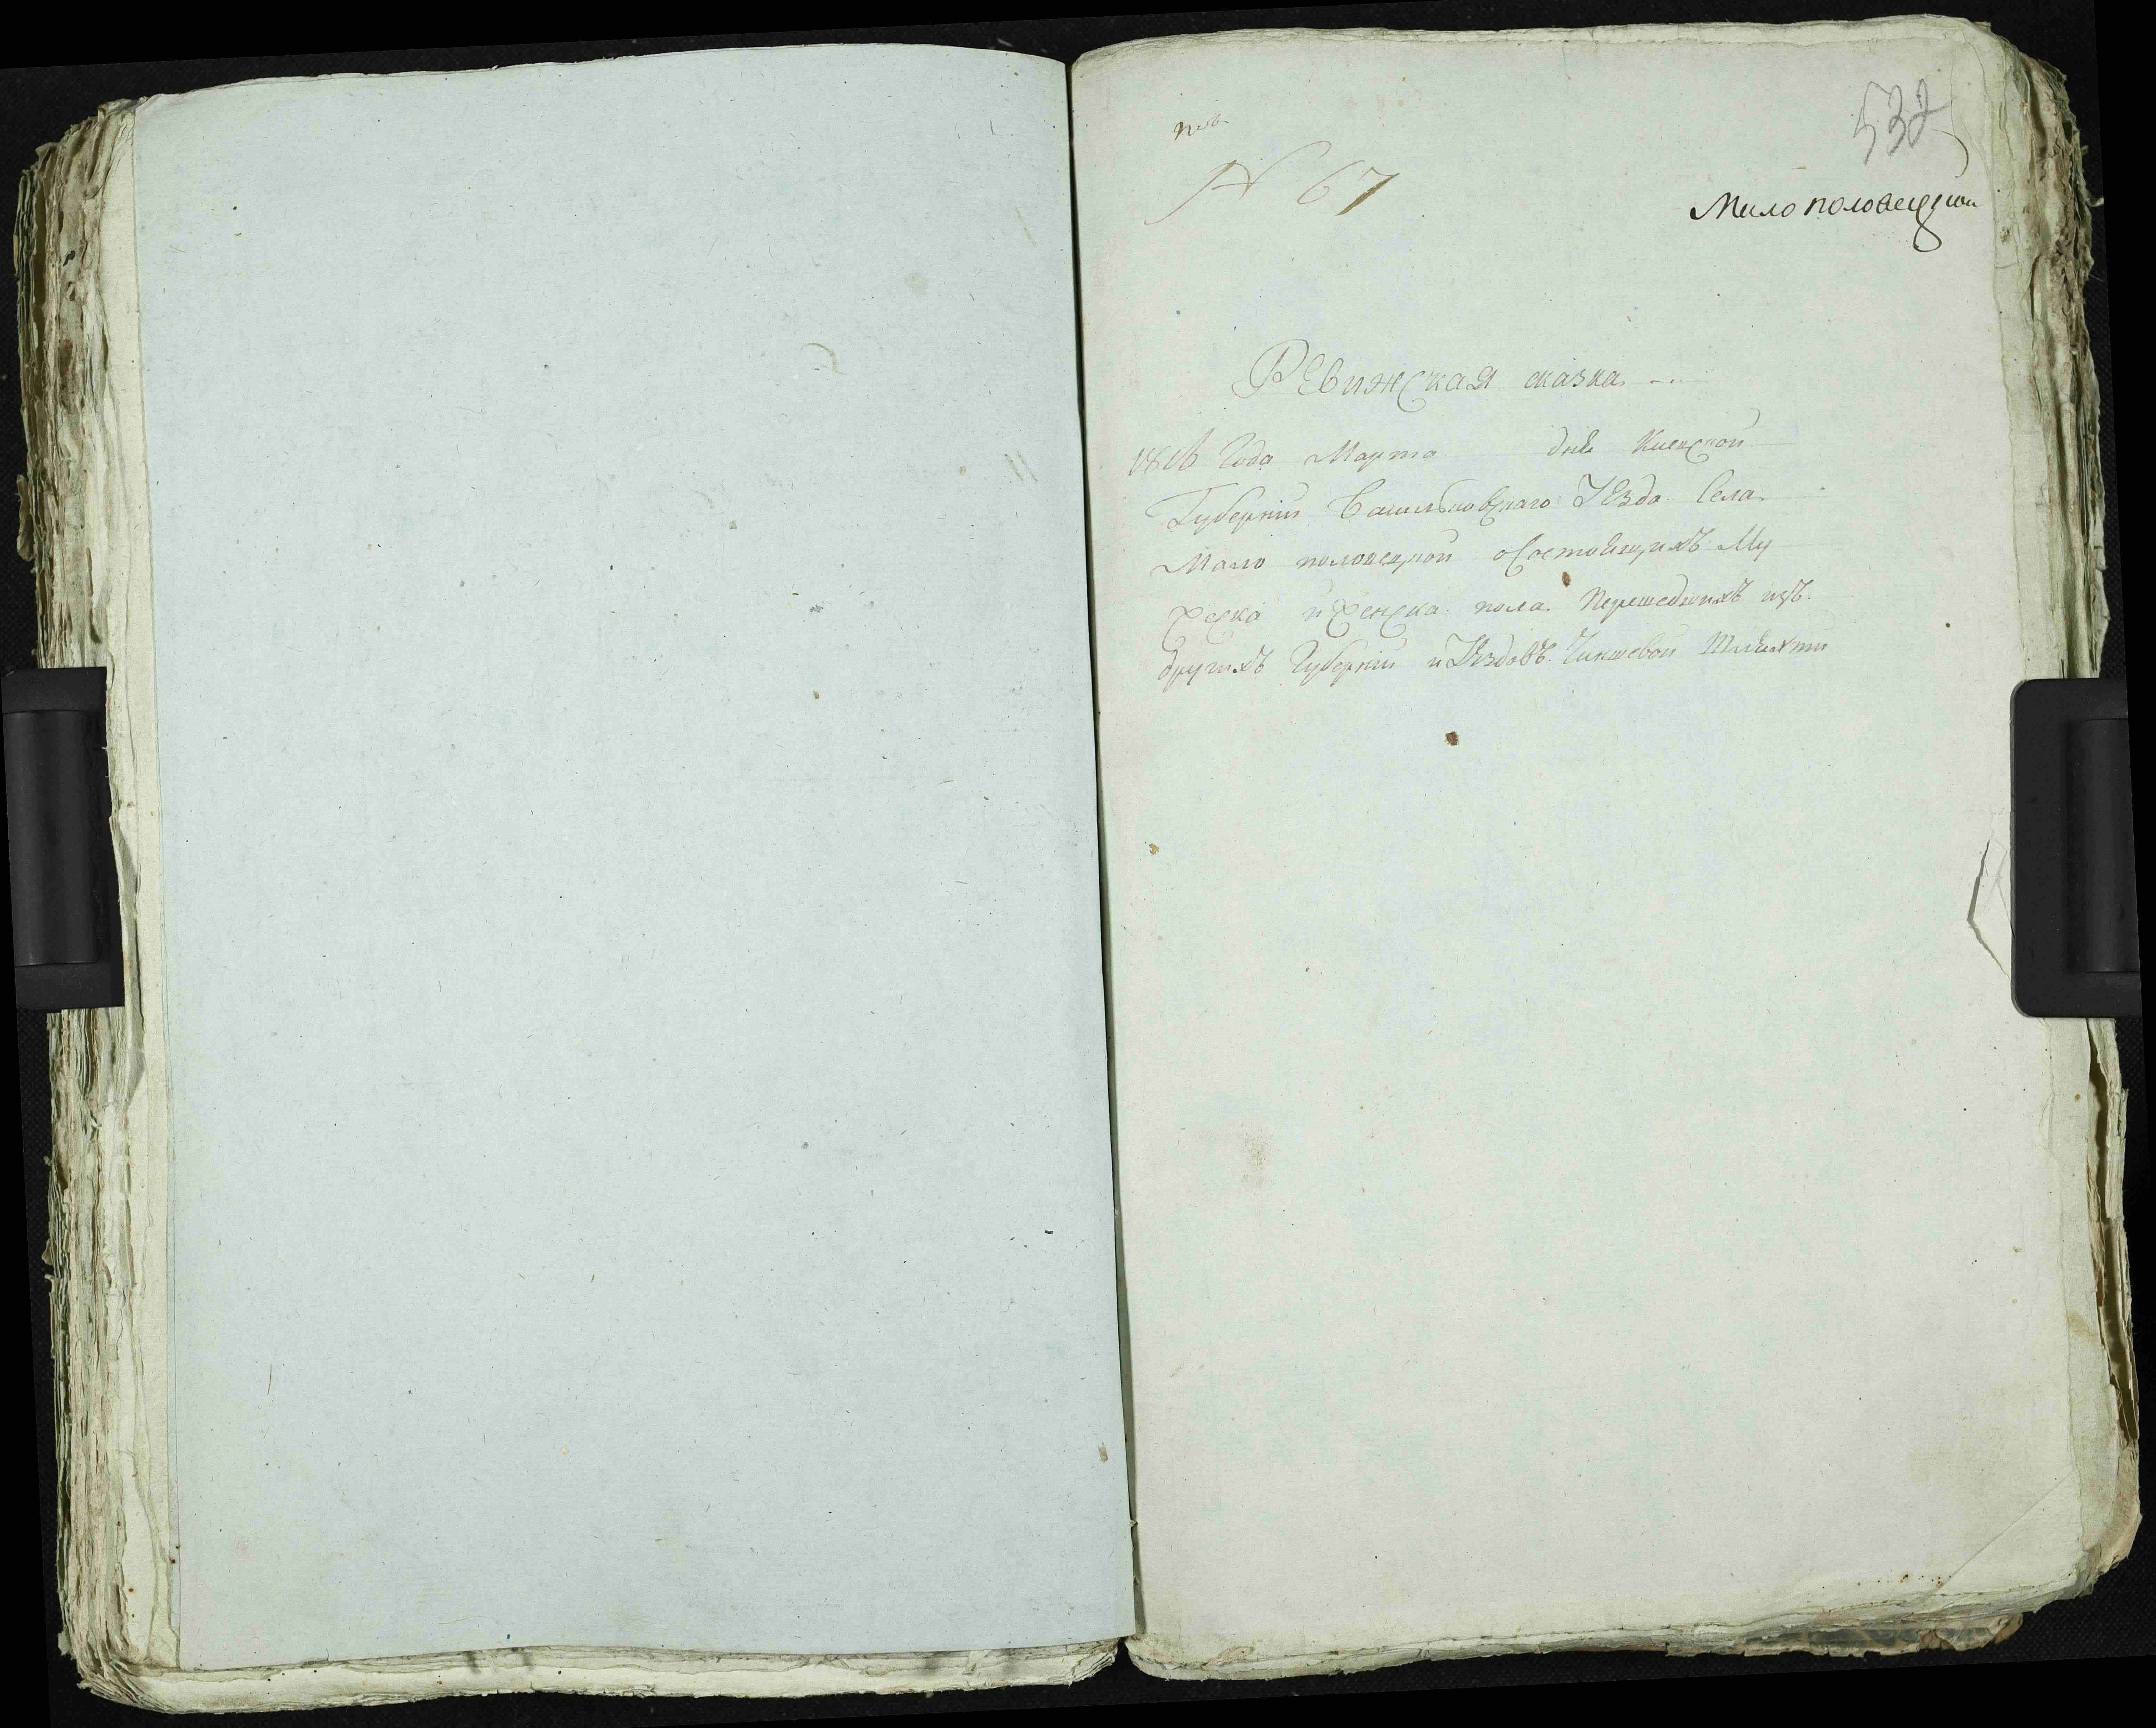 532
N 67
Мало половецкои
Ревижская сказка
1816 Года Марта дня Киевской
Губернии Васильковскаго Уезда Села
Мало половецкой о Состоящихъ Му
жеска и женска пола Перешедшихъ изъ
другихъ Губернии и Уездовъ Чиншевой Шляхти